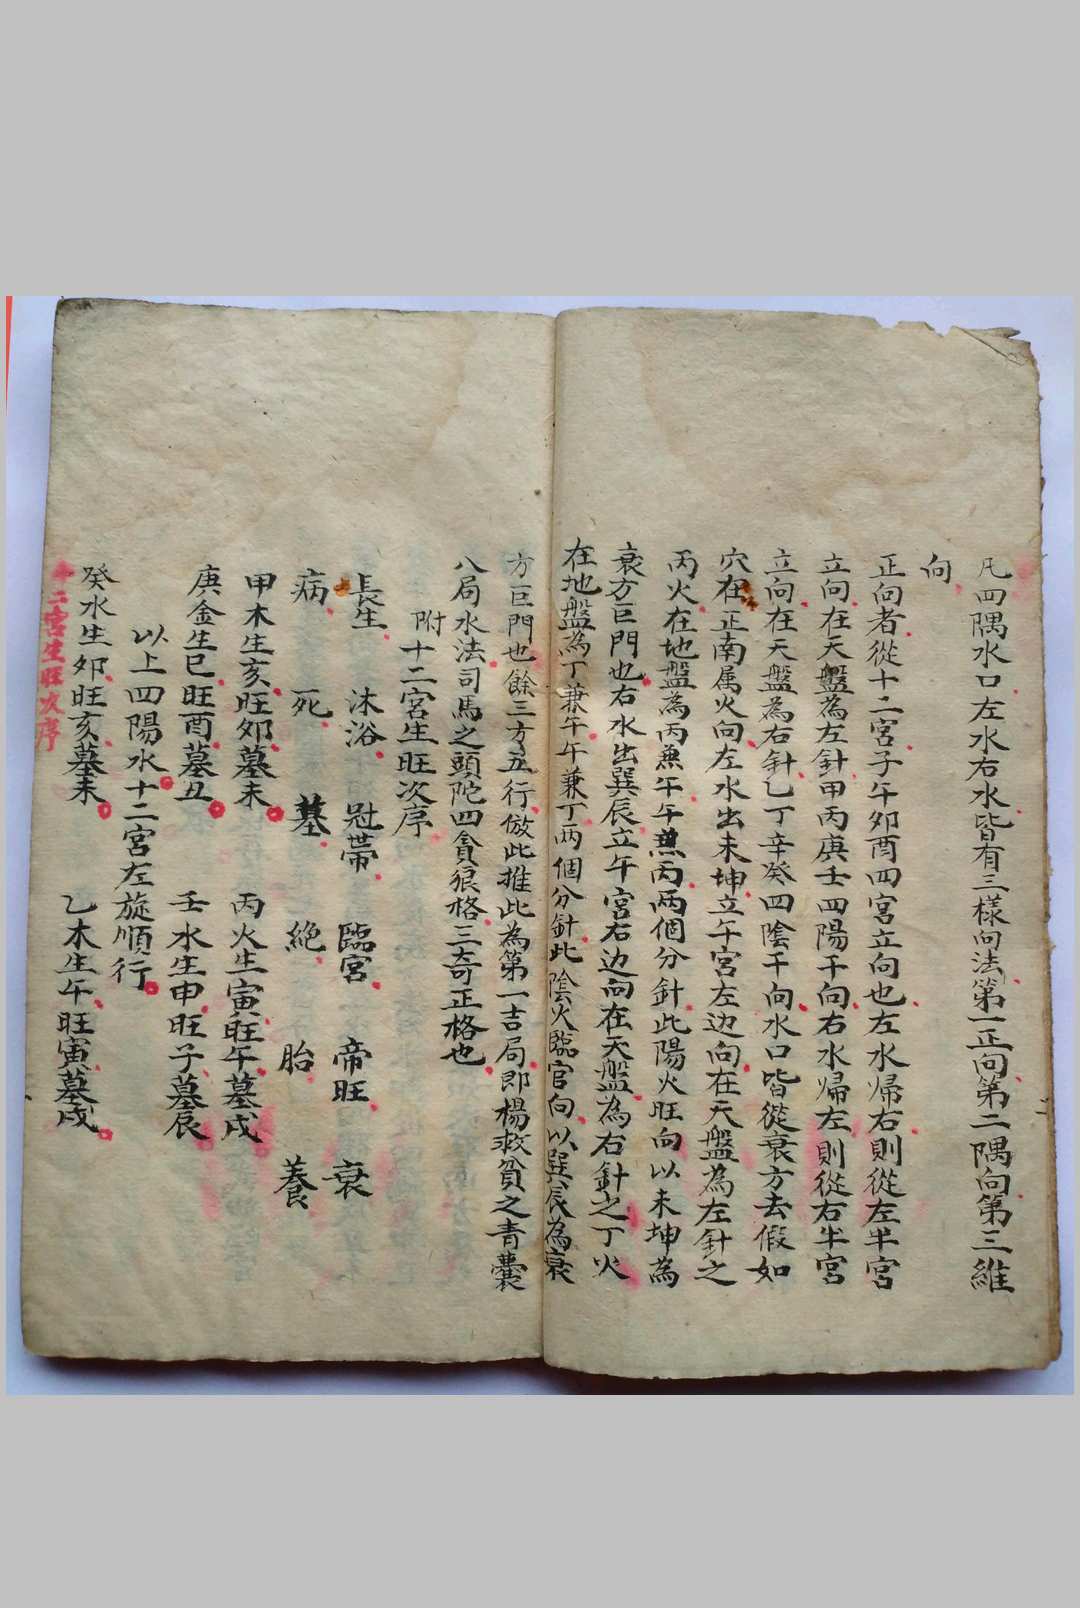 凡四隅水口左水右水皆有三樣向法第一正向第二隅向第三維
向
正向者從十二宮子午卯酉四宮立向也左水歸右則從左半宮
立向在天盤為左針甲丙庚壬四陽干向右水歸左則從右半宮
立向在天盤為右針乙丁辛癸四陰干向水口皆從衰方去假如
穴在正南属火向左水出未坤立午宮左边向在天盤為左針之
丙火在地盤為丙兼午午兼丙兩個分針此陽火旺向以未坤為
衰方巨門也右水出巽辰立午宮右边向在天盤為右針之丁火
在地盤為丁兼午午兼丁兩個分針此陰火臨官向以巽辰為衰
方巨門也餘三方五行倣此推此為第一吉局即楊救貧之青囊
八局水法司馬之頭陀四貪狼格三奇正格也
附十二宮生旺次序
長生 沐浴 冠帶 臨宮 帝旺 衰
病 死 墓 絕 胎 養
甲木生亥旺卯墓未 丙火生寅旺午墓戌
庚金生巳旺酉墓丑 壬水生申旺子墓辰
以上四陽水十二宮左旋順行
癸水生卯旺亥墓未 乙木生午旺寅墓戌
十二宮生旺次序